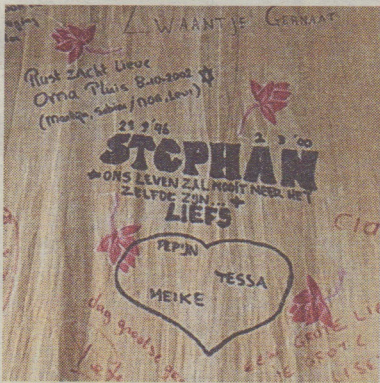 ZWAANTJE GERNAAT
Rust zacht Lieve
Oma Pluis 8-10-2002
29 9 '96
2 3 '00
STEPHAN
ONS LEVEN ZAL NOOIT MEER HET
ZELFDE ZIJN...
LIEFS
PEPIJN
TESSA
MEIKE
dag grootse
EEN GROTE